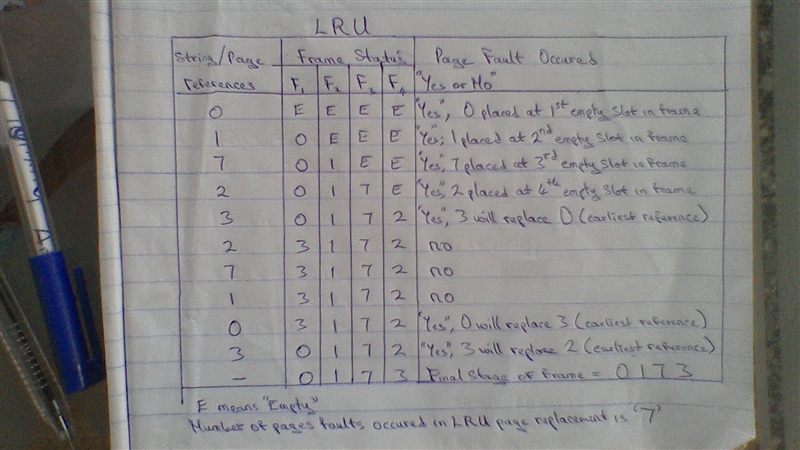 LRU
String/Page references | Frame Status | Page Fault Occured
F1 F2 F3 F4 "Yes or No"
0 E E E E "Yes", 0 placed at 1st empty slot in frame
1 0 E E E "Yes", 1 placed at 2nd empty slot in frame
7 0 1 E E "Yes", 7 placed at 3rd empty slot in frame
2 0 1 7 E "Yes", 2 placed at 4th empty slot in frame
3 0 1 7 2 "Yes", 3 will replace 0 (earliest reference)
2 3 1 7 2 no
7 3 1 7 2 no
1 3 1 7 2 no
0 3 1 7 2 "Yes", 0 will replace 3 (earliest reference)
3 0 1 7 2 "Yes", 3 will replace 2 (earliest reference)
- 0 1 7 3 Final Stage of frame = 0 1 7 3
E means "Empty"
Number of pages faults occured in LRU page replacement is '7'